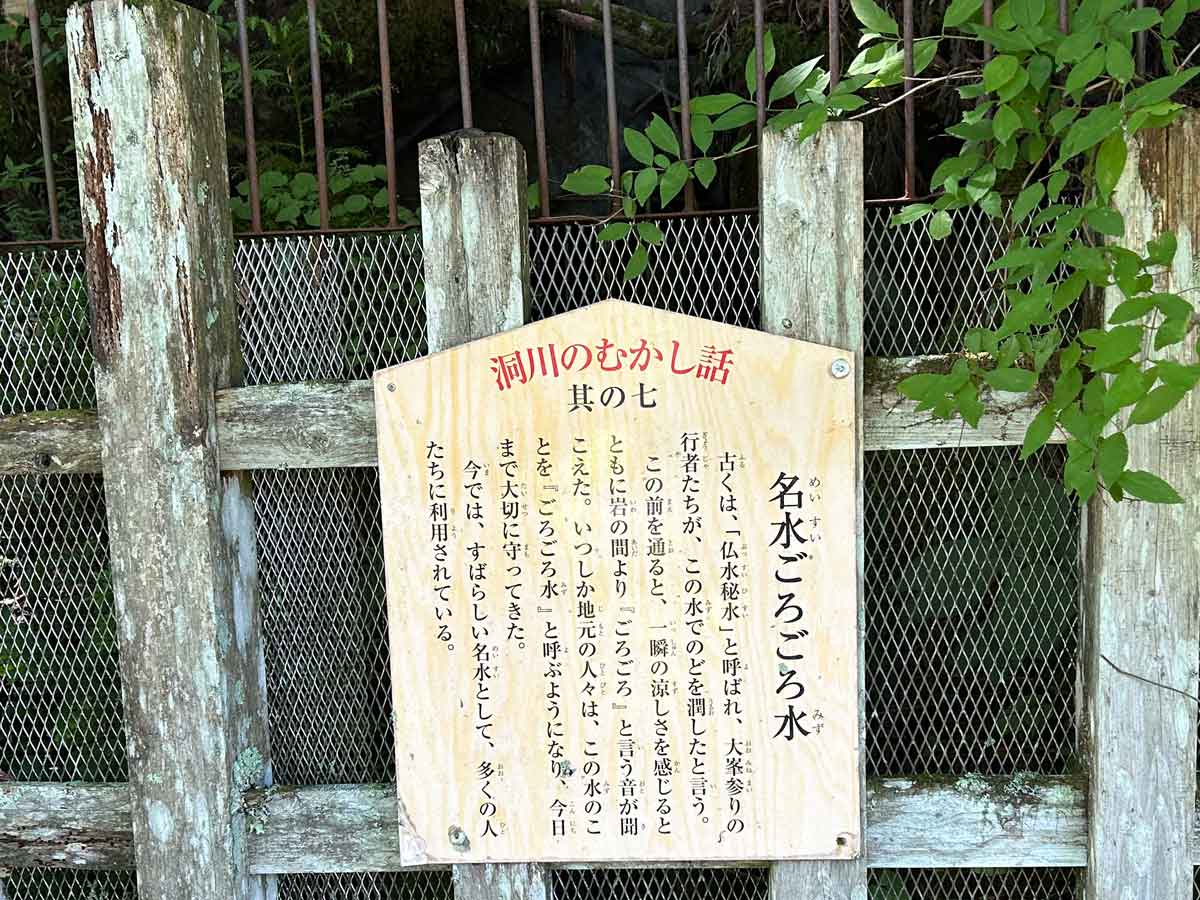 洞川のむかし話
其の七
名水ごろごろ水
古くは、「仏水秘水」と呼ばれ、大峯参りの
行者たちが、この水でのどを潤したと言う。
この前を通ると、一瞬の涼しさを感じると
ともに岩の間より『ごろごろ』と言う音が聞
こえた。いつしか地元の人々は、この水のこ
とを『ごろごろ水』と呼ぶようになり、今日
まで大切に守ってきた。
今では、すばらしい名水として、多くの人
たちに利用されている。